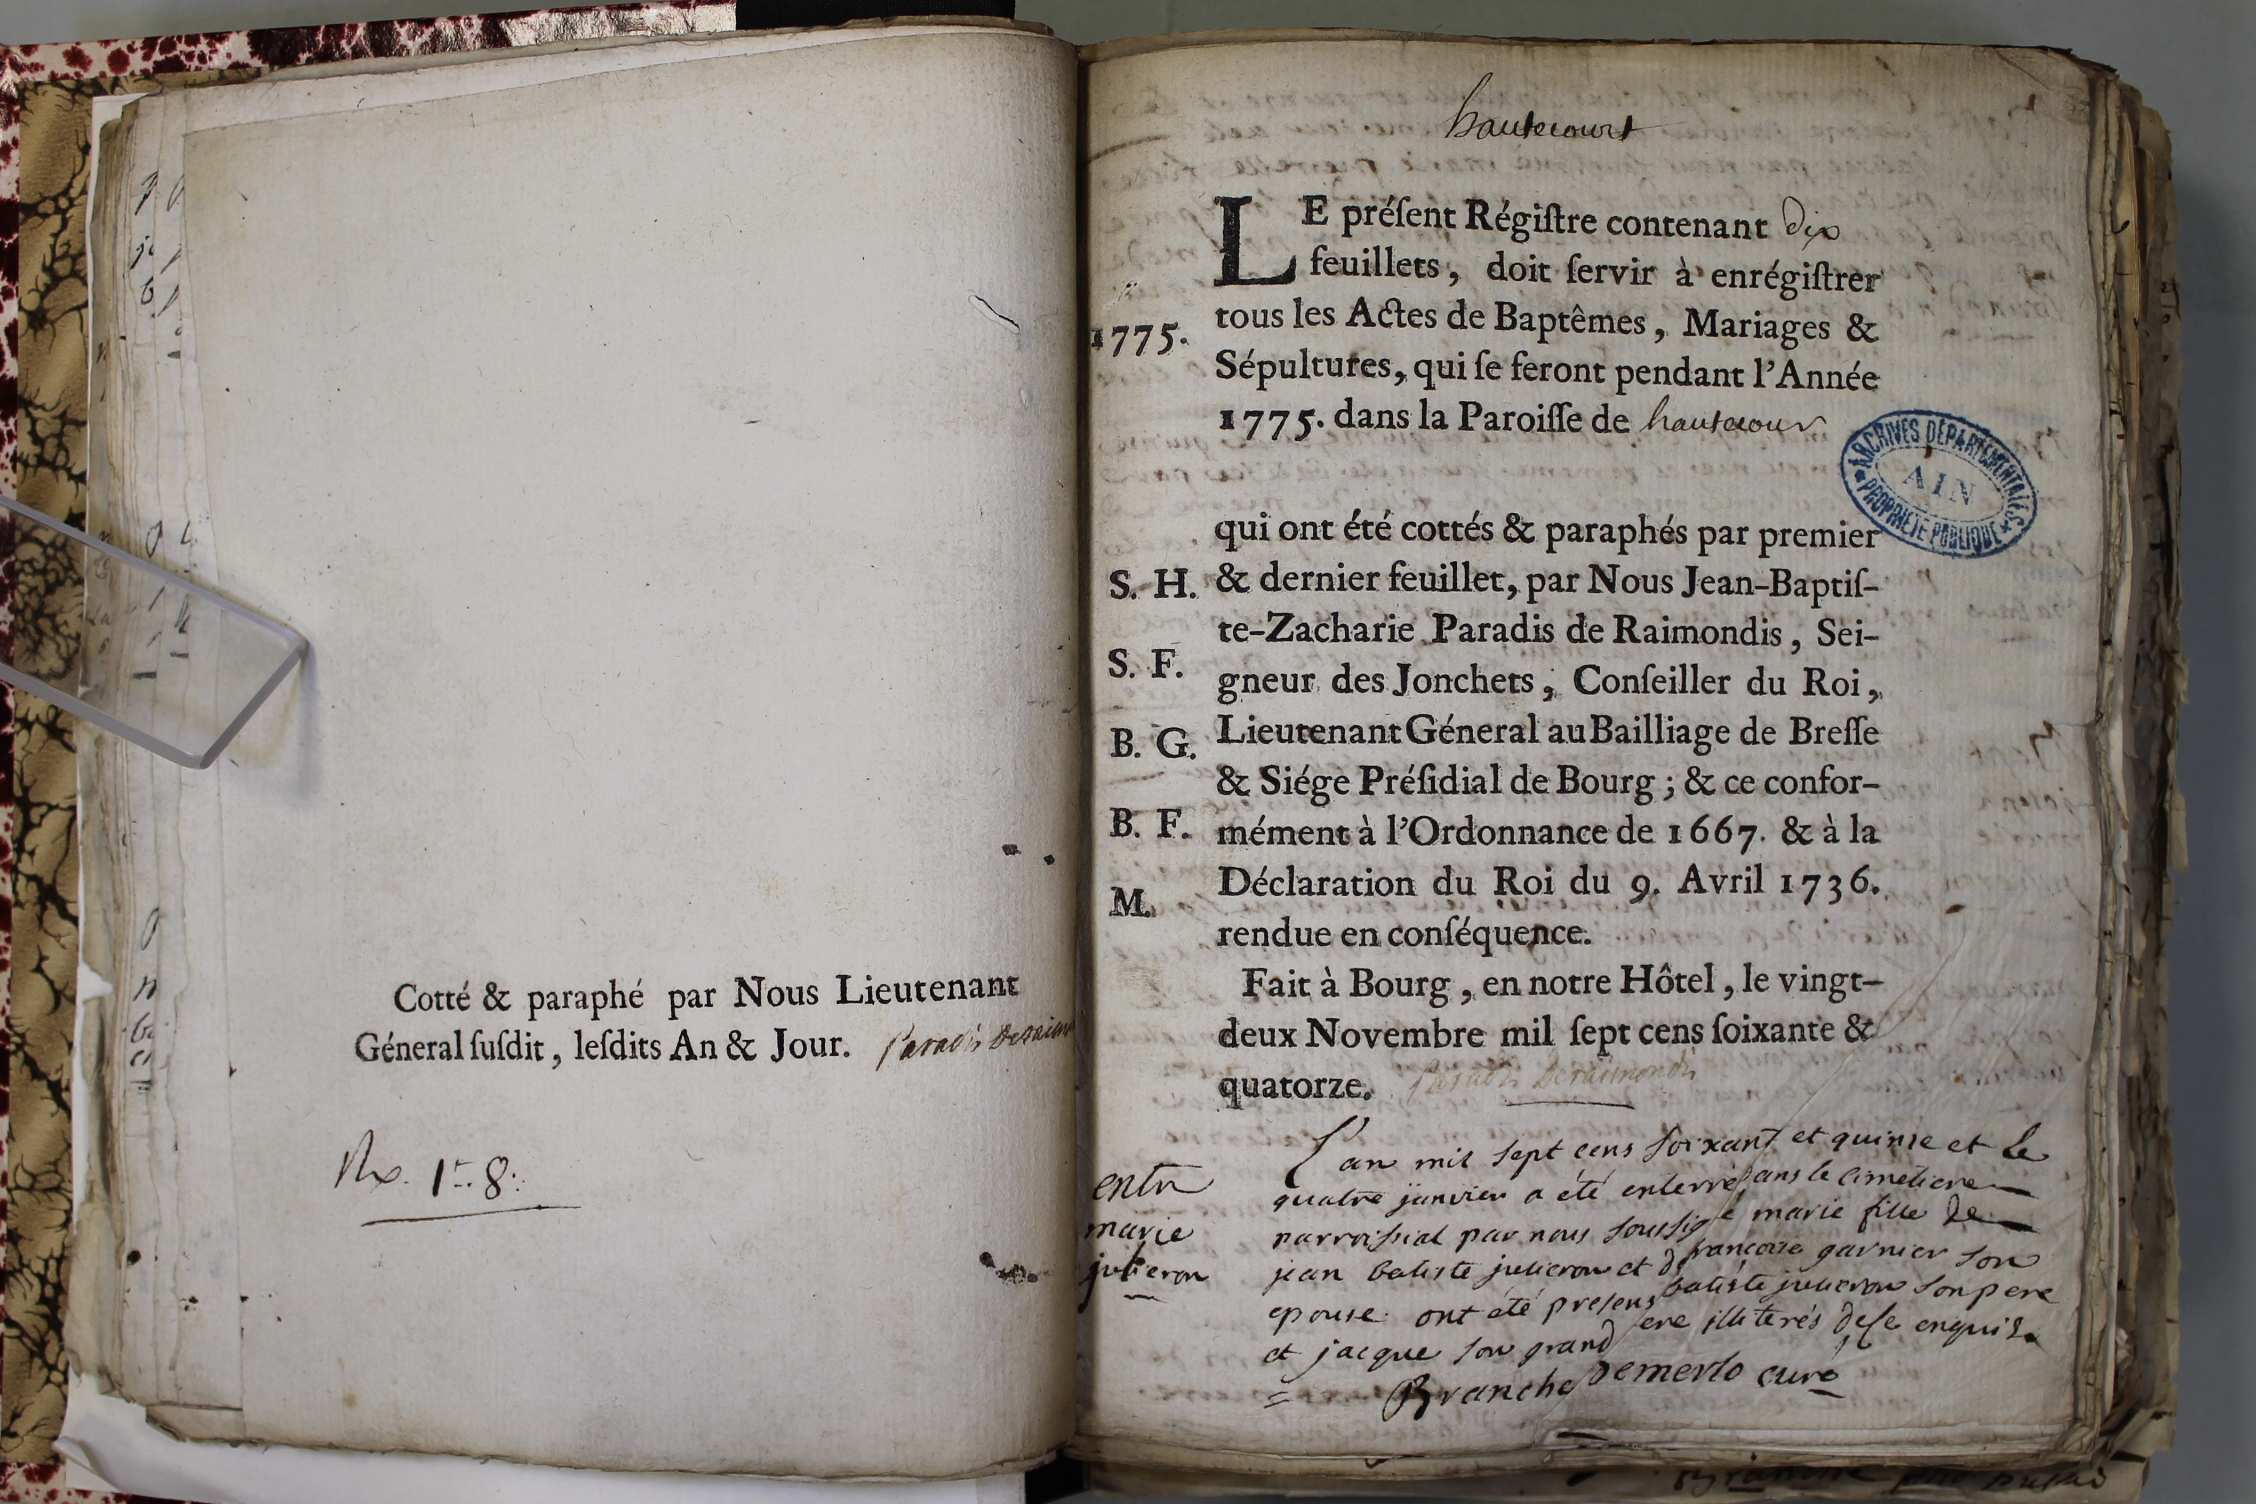 Cotté & paraphé par Nous Lieutenant
Géneral ſuſdit, leſdits An & Jour. Paradis Deraimon
Rx. 1.. 8..
hautecourt
LE préſent Régiſtre contenant dix
feuillets, doit ſervir à enrégiſtrer
tous les Actes de Baptêmes, Mariages &
Sépultures, qui ſe feront pendant l'Année
1775. dans la Paroiſſe de hautecour
qui ont été cottés & paraphés par premier
& dernier feuillet, par Nous Jean-Baptiſ-
te-Zacharie Paradis de Raimondis, Sei-
gneur des Jonchets, Conſeiller du Roi,
Lieutenant Géneral au Bailliage de Breſſe
& Siége Préſidial de Bourg; & ce confor-
mément à l'Ordonnance de 1667. & à la
Déclaration du Roi du 9. Avril 1736.
rendue en conſéquence.
Fait à Bourg, en notre Hôtel, le vingt-
deux Novembre mil ſept cens ſoixante &
quatorze. Paradis Deraimondis
1775.
S. H.
S. F.
B. G.
B. F.
M.
ARCHIVES DÉPARTEMENTALES
AIN
PROPRIÉTÉ PUBLIQUE
entr
marie
julieron
L'an mil sept cens soixant et quinse et le
quatre janvier a été enterré dans le cimetiere
parroissial par nous soussigé marie fille de
jean batiste julieron et de francoise garnier son
epouse. ont été presens batiste julieron son pere
et jacque son grand pere illiterés de ce enquis.
Branche Demerlo curé